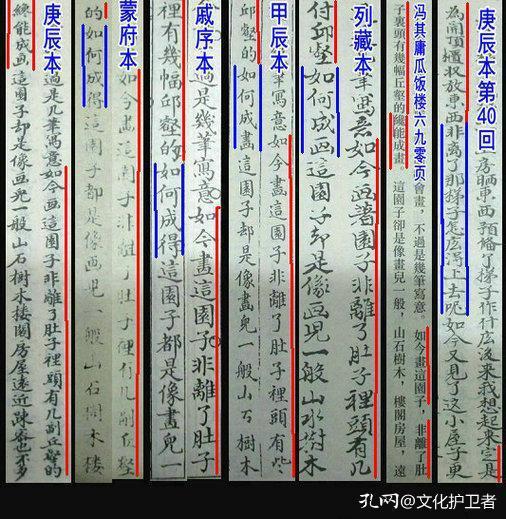 庚辰本第40回
房晒東西預備了梯子作什庅後來我想起來定是
為開頂櫃収放東西非離了那梯子怎庅淂上去呢如今又見了這小屋子更
冯其庸瓜饭楼六九零页
會畫，不過是幾筆寫意。如今畫這園子，非離了肚
子裏頭有幾幅丘壑的纔能成畫。這園子卻是像畫兒一般，山石樹木，樓閣房屋，遠
列藏本
筆寫意如今画著園子非離了肚子裡頭有几
付邱壑如何成画這園子却是像画児一般山水樹木
甲辰本
筆寫意如今畫這園子非離了肚子裡頭有些
邱壑的如何成畫這園子却是像畫兒一般山石樹木
戚序本
過是幾筆寫意如今畫這園子非離了肚子
裡有幾幅邱壑的如何成得這園子都是像畫兒一
蒙府本
如今畫這園子非離了肚子裡有几副丘壑
的如何成得這園子都是像画児一般山石樹木楼
庚辰本
過是几筆寫意如今画這園子非離了肚子裡頭有几副丘壑的
纔能成画這園子却是像画兒一般山石樹木楼閣房屋遠近踈宻也不多
孔网@文化护卫者